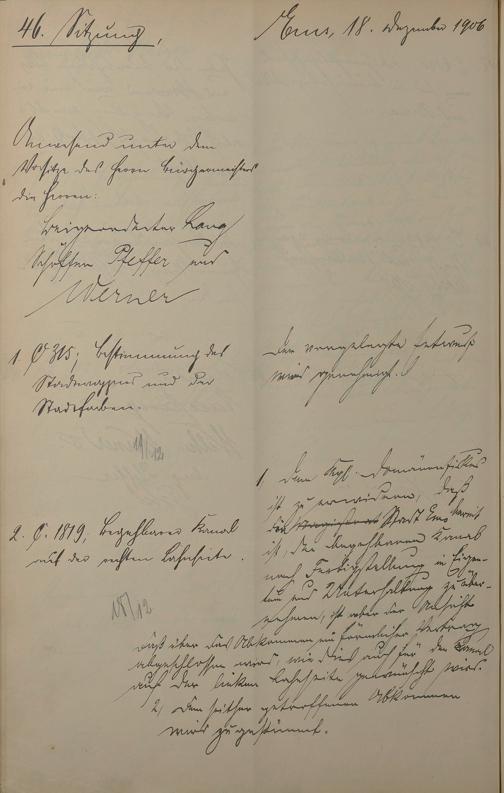 46. Sitzung,
Ems, 18. Dezember 1906
Anwesend unter dem
Vorsitze des Herrn Bürgermeisters
die Herren:
Beigeordneter Lang
Schöffen Pfeffer und
Werner
1. C 315; Bestimmung des
Stadtwappens und der
Stadtfarben.
19/12
Der vorgelegte Entwurf
wird genehmigt.
2. C. 1819; Begehbarer Kanal
auf der rechten Lahnseite.
18/12
1. Dem Kgl. Domänenfiskus
ist zu erwidern, daß
die Stadt Ems bereit
ist, den begehbaren Kanal
nach Fertigstellung in Eigen-
tum und Unterhaltung zu über-
nehmen, ist aber der Ansicht
daß über das Abkommen ein förmlicher Vertrag
abgeschlossen wird, wie dies auch für den Kanal
auf der linken Lahnseite gewünscht wird.
2, Dem seither getroffenen Abkommen
wird zugestimmt.